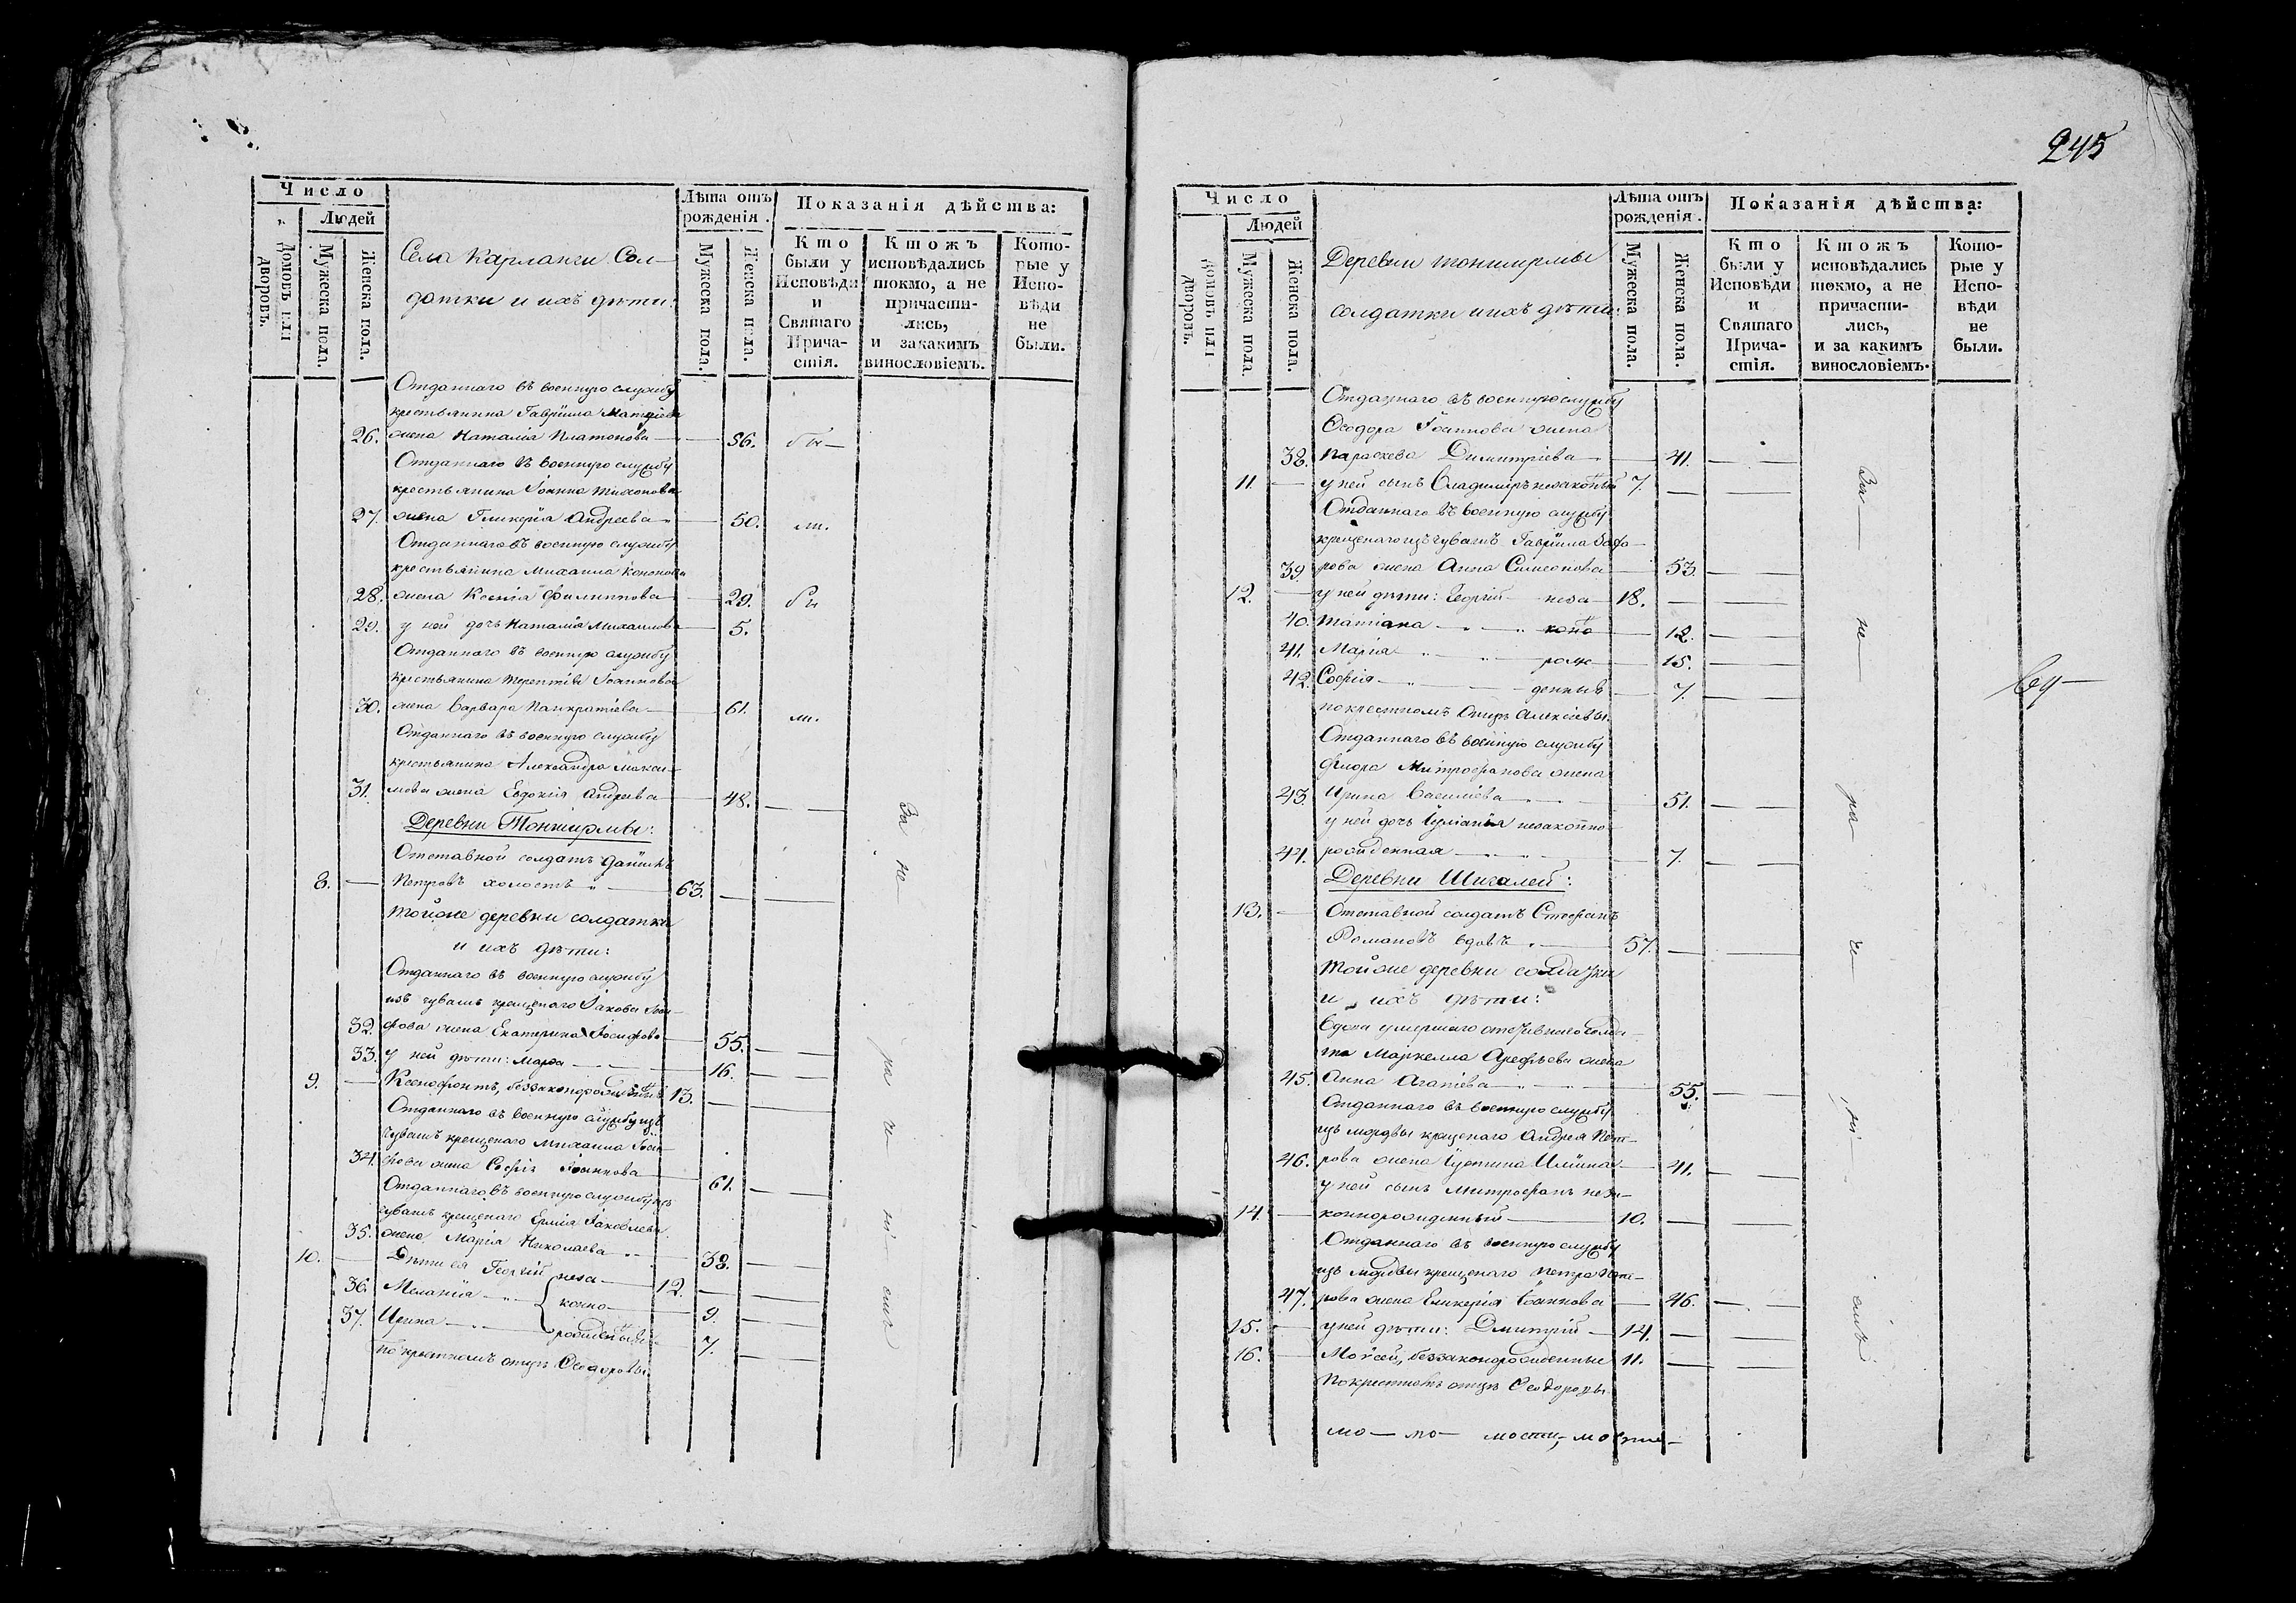 245
Число
Людей
Домовъ или дворовъ.
Мужеска пола.
Женска пола.
Села Карланги Сол-
датки и ихъ дѣти:
Лѣта отъ
рожденія.
Мужеска пола.
Женска пола.
Показанія дѣйства:
Кто
были у
Исповѣди
и
Святаго
Прича-
стія.
Ктожъ
исповѣдались
токмо, а не
причасти-
лись,
и закакимъ
винословіемъ.
Кото-
рые у
Испо-
вѣди
не
были.
Отданнаго въ военную службу
крестьянина Гавріила Матѳіева
26. жена Наталія Платонова — 56. бы—
Отданнаго въ военную службу
крестьянина Іоанна Тихонова
27. жена Гликерія Андреева — 50. ли.
Отданнаго въ военную службу
крестьянина Михаила Кононова
28. жена Ксенія Филиппова — 29. бы
29. у ней дочь Наталія Михаилова 5.
Отданнаго въ военную службу
крестьянина Терентія Іоаннова
30. жена Варвара Панкратіева — 61. ли.
Отданнаго въ военную службу
крестьянина Александра Макси-
31. мова жена Евдокія Андреева — 48. — —
Деревни Тонширмы:
Отставной солдатъ Даніилъ
8. — Петровъ холостъ — 63. — —
Тойже деревни солдатки
и ихъ дѣти:
Отданнаго въ военную службу
изъ чувашъ крещенаго Іакова Іоси-
32. фова жена Екатерина Іосифова 55. — —
33. у ней дѣти: Марѳа — 16. — —
9. — Ксенофонтъ, беззаконнорожденный 13. — —
Отданнаго въ военную службу изъ
чувашъ крещенаго Михаила Іоси-
34. фова жена Софія Іоаннова — 61. — —
Отданнаго въ военную службу изъ
чувашъ крещенаго Ермія Іаковлева
35. жена Марія Николаева — 38. — —
10. — Дѣти ея Георгій неза- 12. — —
36. Меланія — конно- 9. — —
37. Ирина — рожденные 7. — —
по крестномъ отцѣ Ѳеодоровы
За не ра че ні емъ
Число
Людей
Домовъ или дворовъ.
Мужеска пола.
Женска пола.
Деревни Тонширмы
солдатки и ихъ дѣти:
Лѣта отъ
рожденія.
Мужеска пола.
Женска пола.
Показанія дѣйства:
Кто
были у
Исповѣди
и
Святаго
Прича-
стія.
Ктожъ
исповѣдались
токмо, а не
причасти-
лись,
и за какимъ
винословіемъ.
Кото-
рые у
Испо-
вѣди
не
были.
Отданнаго въ военную службу
Ѳеодора Іоаннова жена
38. Параскева Димитріева — 41. — —
11. — у ней сынъ Владимиръ незаконный 7. — —
Отданнаго въ военную службу
крещенаго изъ чувашъ Гавріила Заха-
39. рова жена Анна Симеонова — 53. — —
12. — у ней дѣти: Георгій — неза- 18. — —
40. Татіана — конно 12. — —
41. Марія — рож- 15. — —
42. Софія — денные 7. — —
по крестномъ Отцѣ Алексіевы.
Отданнаго въ военную службу
Флора Митрофанова жена
43. Ирина Василіева — 51. — —
у ней дочь Іуліанія незаконно-
44. рожденная — 7. — —
Деревни Шигалей:
13. — Отставной солдатъ Стефанъ
Романовъ вдовъ — 57. — —
Тойже деревни солдатки
и ихъ дѣти:
Вдова умершаго отставнаго солда-
та Маркелла Арефьева жена
45. Анна Агапіева — 55. — —
Отданнаго въ военную службу
изъ мордвы крещенаго Андрея Пет-
46. рова жена Іустина Иліина — 41. — —
у ней сынъ Митрофанъ неза-
14. — коннорожденный — 10. — —
Отданнаго въ военную службу
изъ мордвы крещенаго Петра Пет-
47. рова жена Гликерія Іоаннова — 46. — —
15. — у ней дѣти: Дмитрій — 14. — —
16. — Моѵсей, беззаконнорожденные 11. — —
По крестномъ отцѣ Ѳеодоровы.
За— не— ра че— ні— емъ